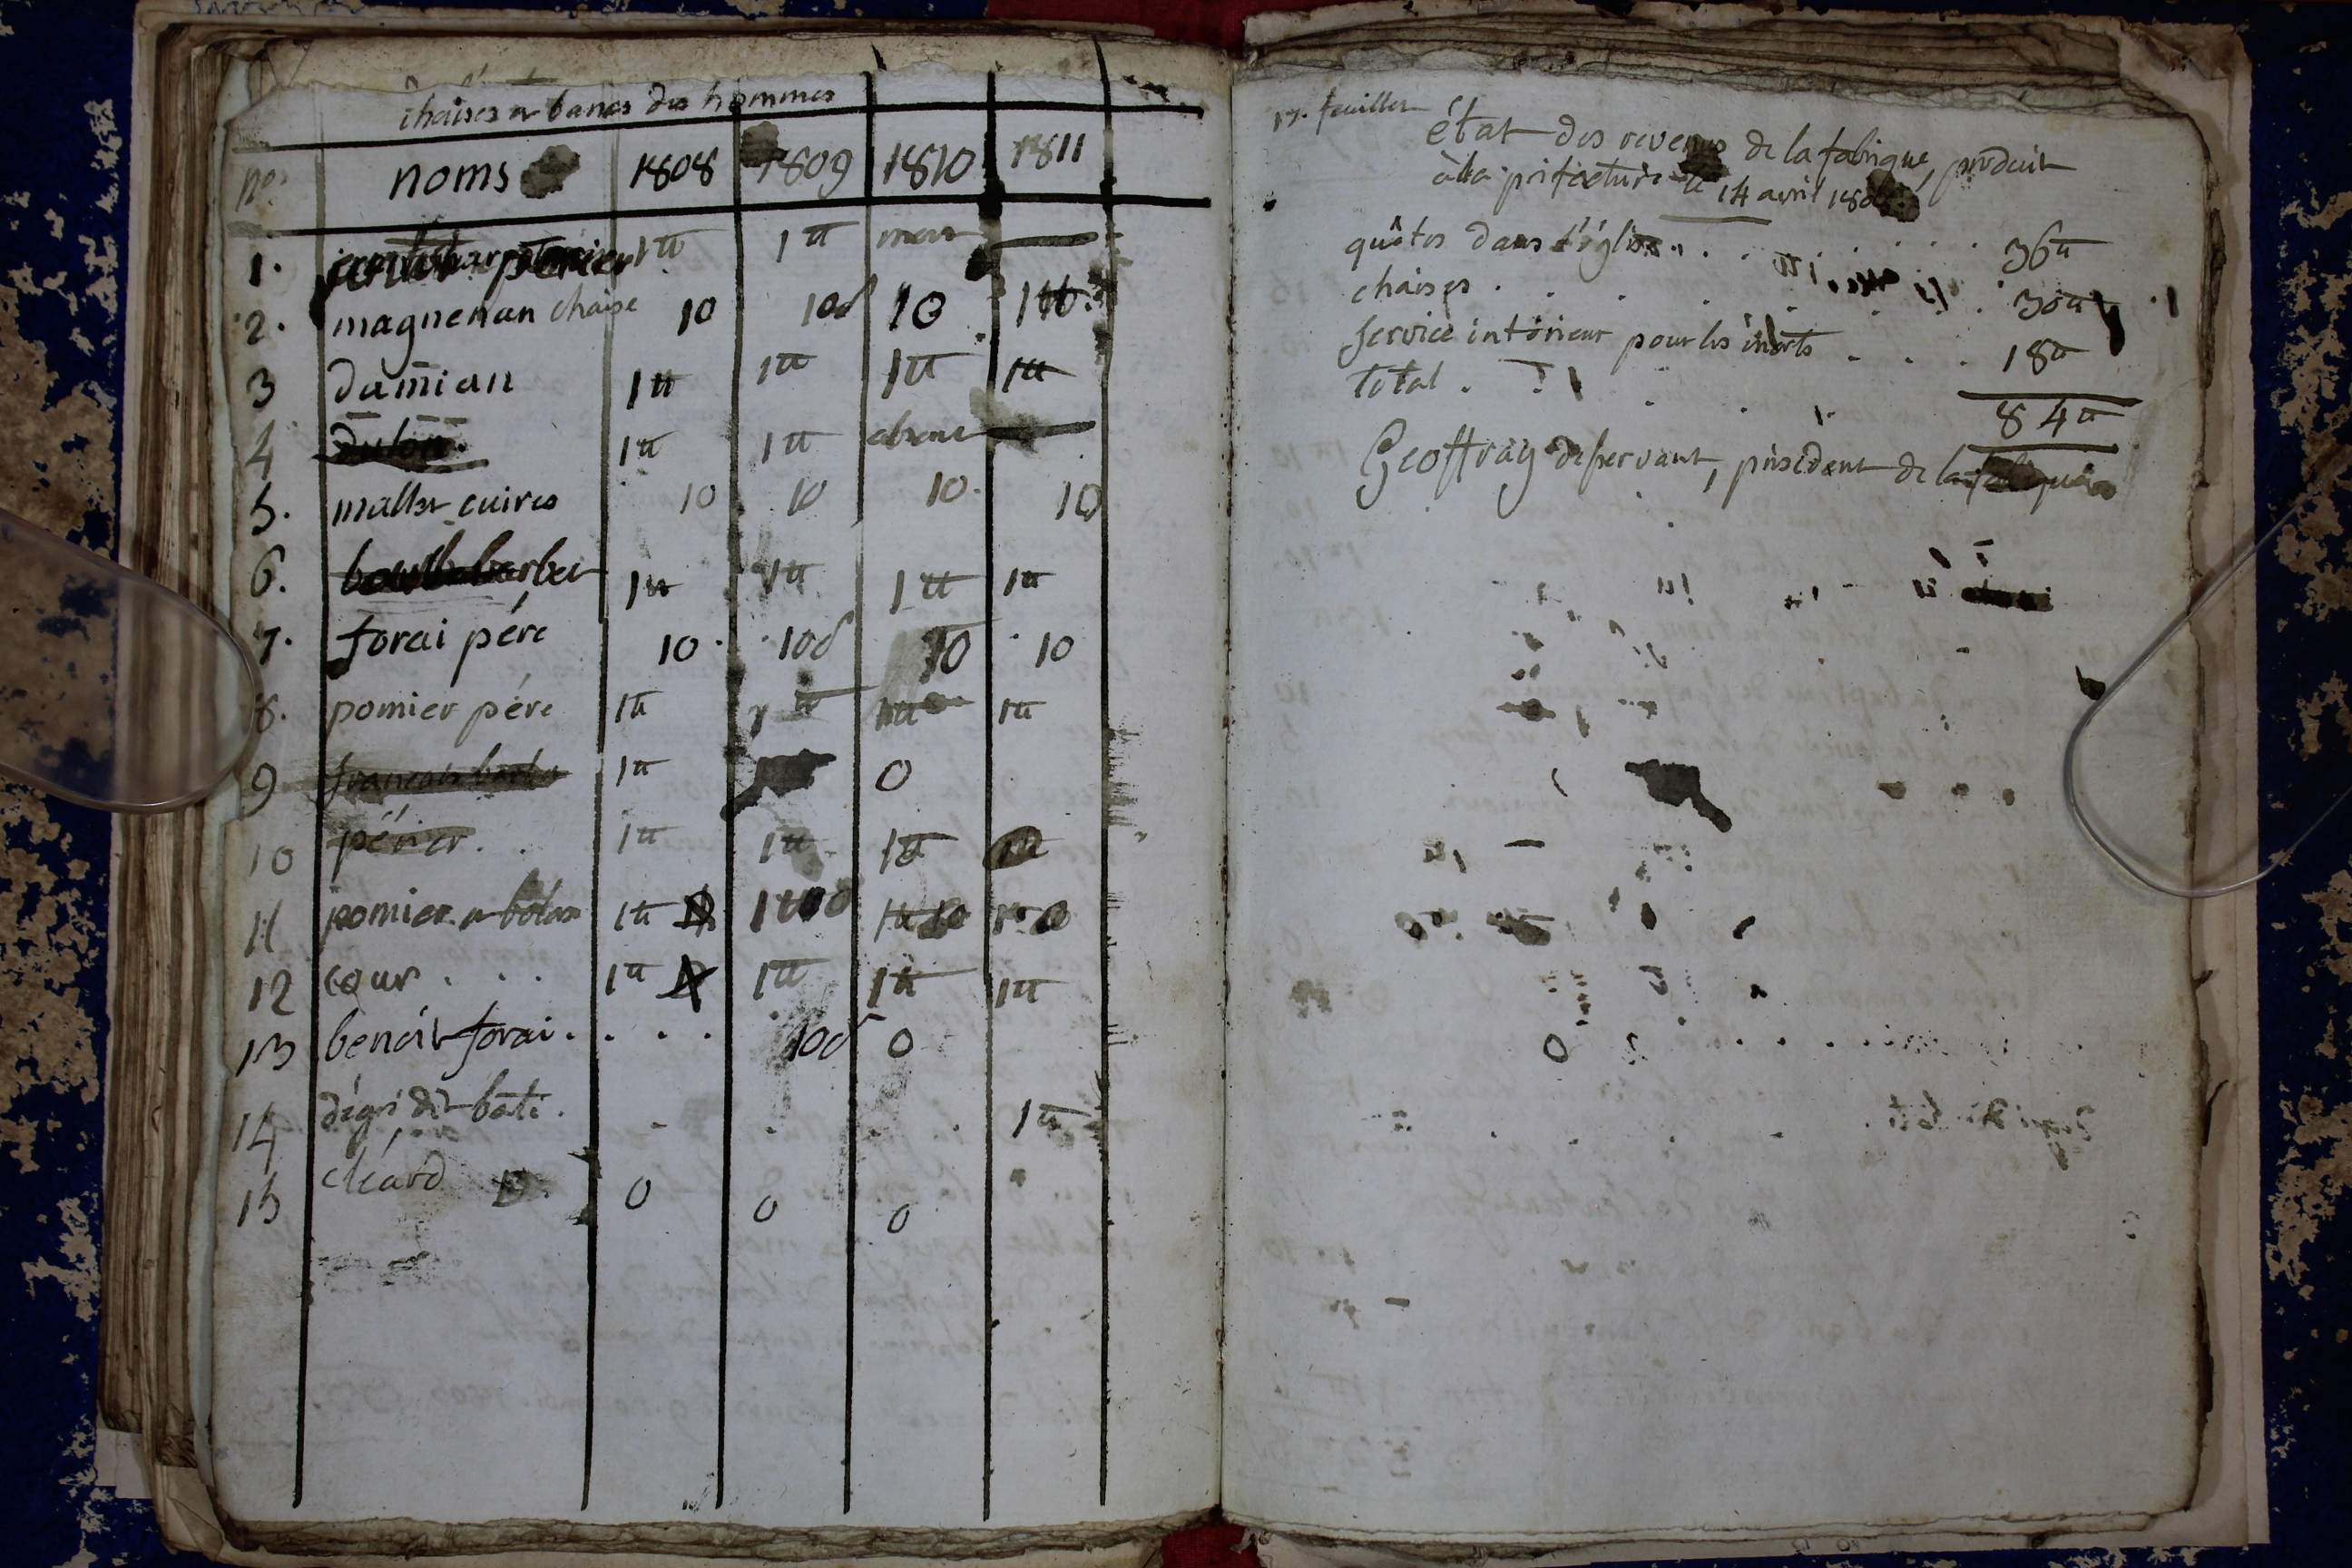 chaises et bancs des hommes
no. noms 1808 1809 1810 1811
1. perier 1tt 1tt mort
2. magnenan chaise 10 10s 10 1tt
3 damian 1tt 1tt 1tt 1tt
4 dulon 1tt 1tt absent
5. mallet cuires 10 10 10. 10
6. barbet 1tt 1tt 1tt 1tt
7. forai pére 10. 10s 10 10
8. pomier pére 1tt 1tt 1tt 1tt
9 francois 1tt 0
10 périer. 1tt 1tt 1tt 1tt
11 pomier et 1tt 1tt 1tt
12 cœur . . . 1tt 1tt 1tt 1tt
13 benoit forai . . . . 10s 0
14 dégri dit bati. . . . 1tt
15 cléard 0 0 0
17. feuillet
état des revenus de la fabrique, produit
à la préfecture le 14 avril
quêtes dans l'église . . . 36tt
chaises . . . 30tt
service intérieur pour les morts . . . 18tt
total . . . 84tt
Geoffray deservant, président de la fabrique